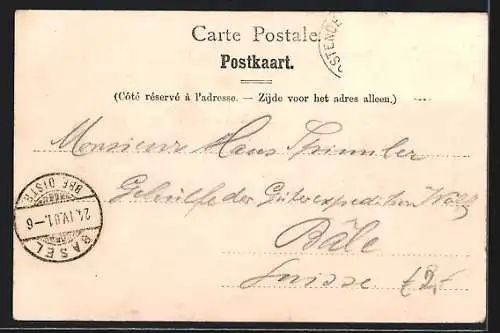 Carte Postale.
Postkaart.
(Côté réservé à l'adresse. — Zijde voor het adres alleen.)
OSTENDE
Monsieur Hans
Gehilfe der Güterexpedition
Bâle
Suisse
BASEL
24.IV.01.-6
BRF. DISTR.